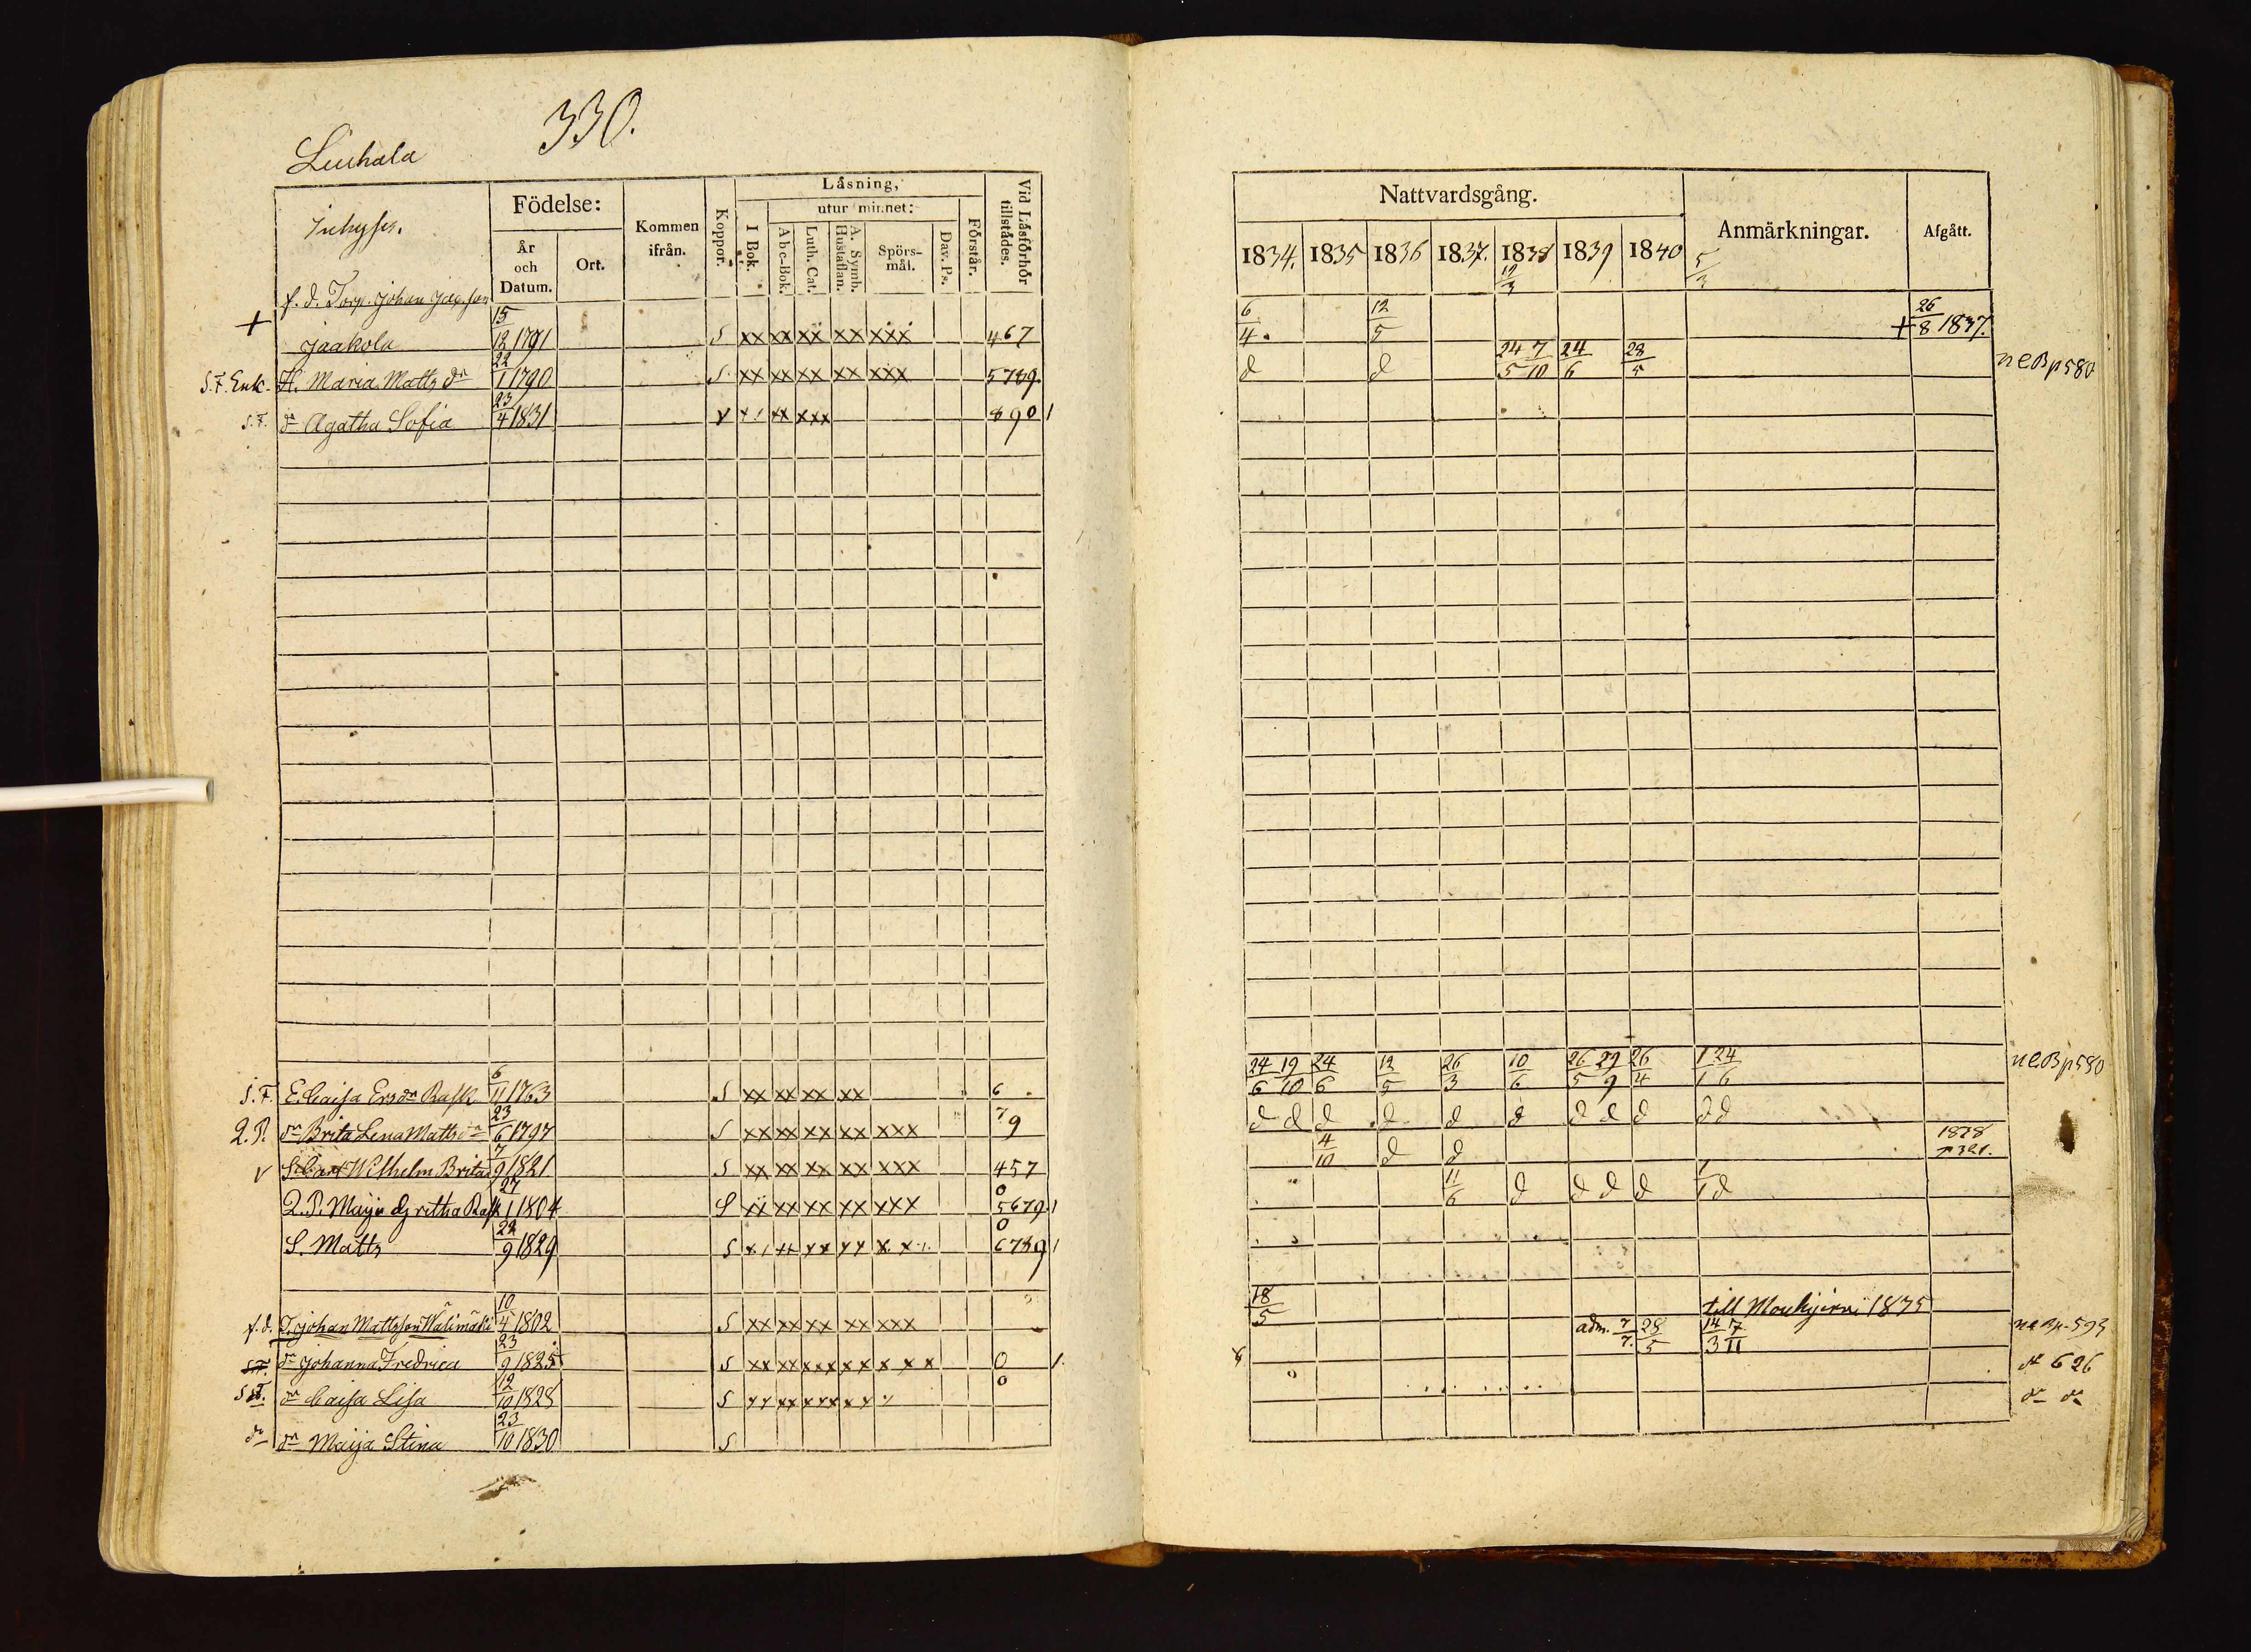 330.
Liuhala
Inhyses.
Födelse:
År och Datum.
Ort.
Kommen ifrån.
Koppor.
Låsning,
utur minnet:
I Bok.
Abc-Bok.
Luth. Cat.
A. Symb. Hustaflan.
Spörs-mål.
Dav. Ps.
Förstår.
Vid Låsförhör tillstådes.
f. d. Torp. Johan Jac.son
+ Jaakola 15/12 1791 S xx xx xx xx xxx 467
S.F. Enk. H. Maria Matts dr 22/1 1790 S xx xx xx xx xxx 5789
S.F. dr Agatha Sofia 23/4 1831 v x/ xx xxx 890 1
S.F. E. Caisa Ers dr Rask 6/11 1763 S xx xx xx xx 6
Q.P. dr Brita Lena Matts dr 23/6 1797 S xx xx xx xx xxx 79
v Wilhelm Brita 7/9 1821 S xx xx xx xx xxx 457
Q.P. Maija Gretha Rask 27/1 1804 S xx xx xx xx xxx 0 5679 1
S. Matts 22/9 1829 S x/ xx xx xx x x 0 6789 1
f.d. T. Johan Mattsson Wälimäki 10/4 1802 S xx xx xx xx xxx
dr Johanna Fredrica 23/9 1825 S xx xx xxx xx x x 0 1
S.F. dr Caisa Lisa 12/10 1828 S xx xx xxx xx 0
dr dr Maija Stina 23/10 1830 S
Nattvardsgång.
Anmärkningar.
Afgått.
1834. 1835 1836 1837. 1838 1839 1840
12/3 5/3
6/4 12/5 + 26/8 1837.
d d 24/5 7/10 24/6 28/5 n e B p 580
24/6 19/10 24/6 12/5 26/3 10/6 26/5 29/9 26/4 1/1 24/6 n e B p 580
d d d d d d d d d d d
4/10 d d 1838 p 321.
11/6 d d d d 1/1 d
18/5 till Mouhijärvi 1835
adm. 7/7. 28/5 14/3 7/11 n e B p. 593
dr 626
dr dr